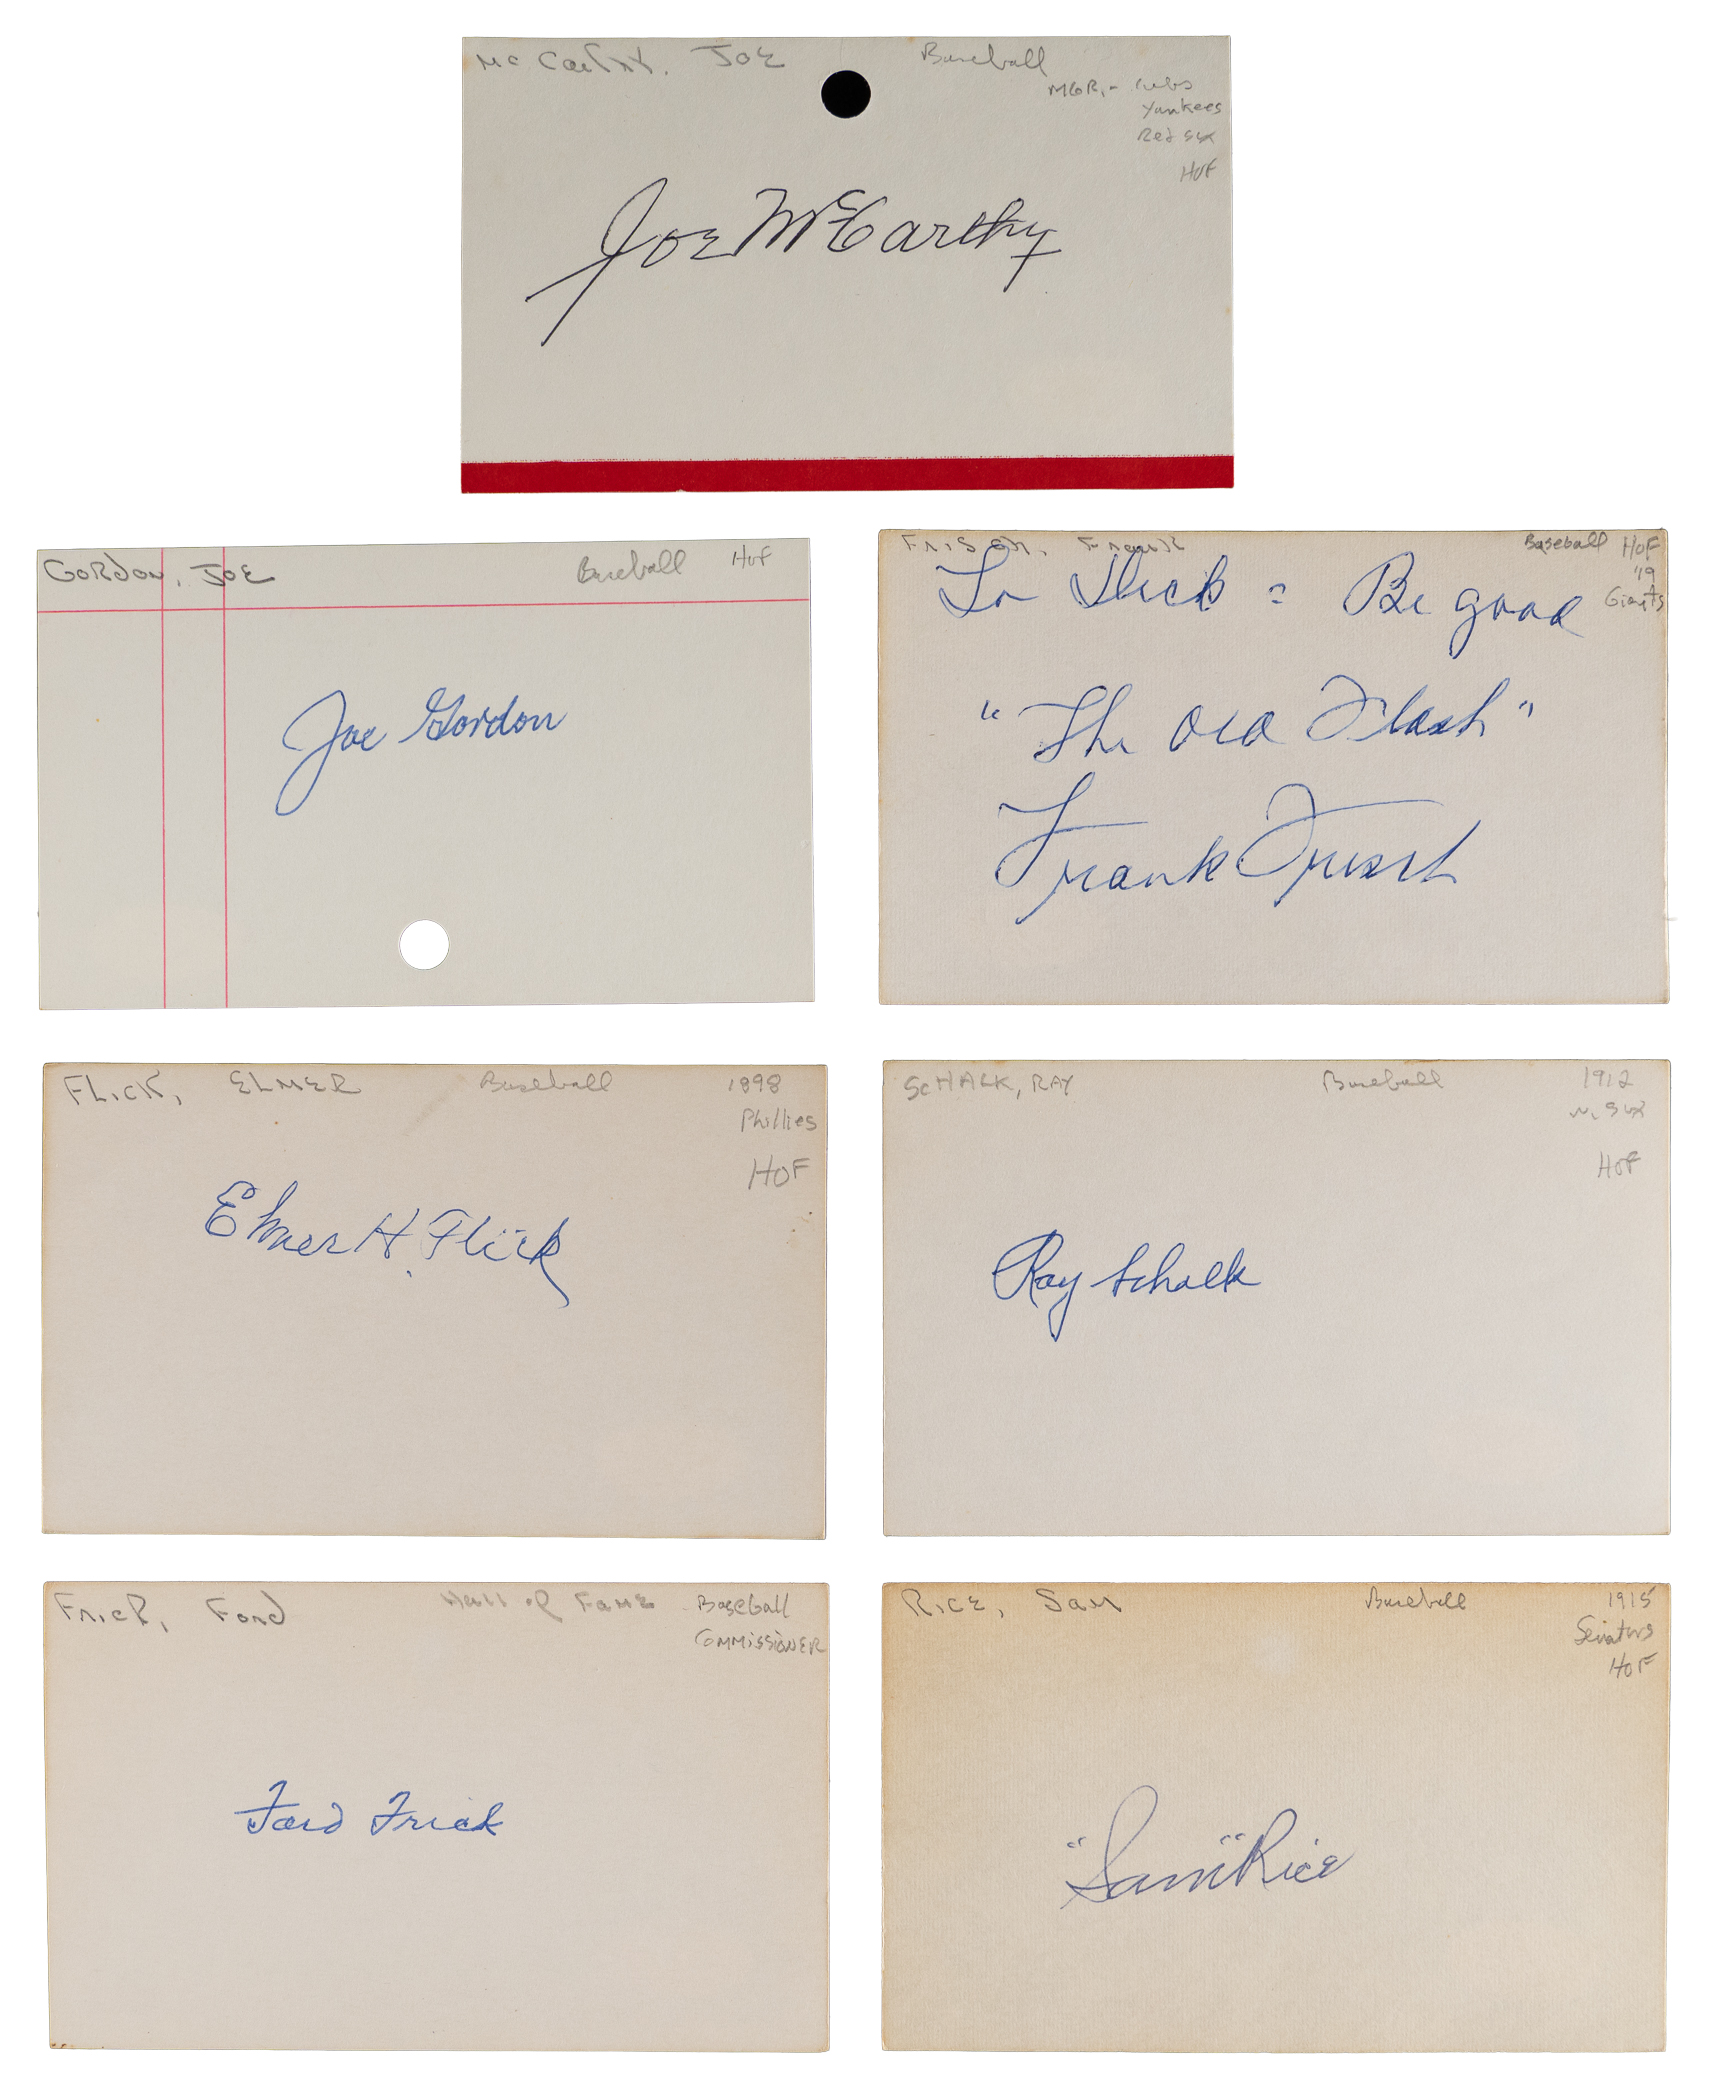 McCarthy, Joe Baseball
MGR,- Cubs
Yankees
Red Sox
HOF
Joe McCarthy
GORDON, JOE Baseball HOF
Joe Gordon
Frisch, Frank Baseball HOF
'19
Giants
To Dick = Be good
"The Old Flash"
Frank Frisch
FLICK, ELMER Baseball 1898
Phillies
HOF
Elmer H. Flick
SCHALK, RAY Baseball 1912
W. Sox
HOF
Ray Schalk
Frick, Ford Hall of Fame Baseball
COMMISSIONER
Ford Frick
RICE, Sam Baseball 1915
Senators
HOF
"Sam" Rice